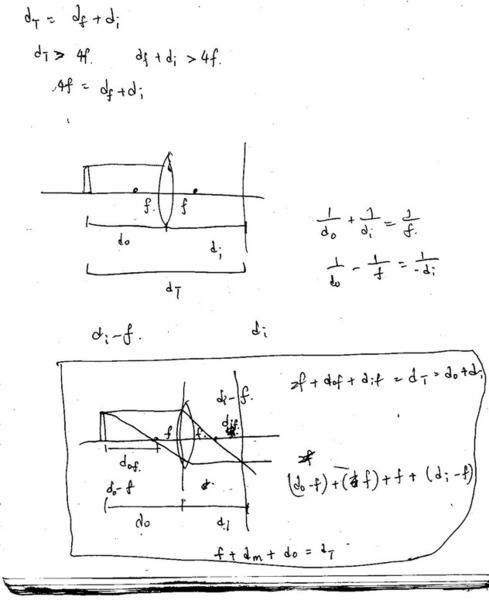 d_T = d_f + d_i
d_T > 4f. d_f + d_i > 4f.
4f = d_f + d_i
f. f
d_o d_i
d_T
1/d_o + 1/d_i = 1/f.
1/d_o - 1/f = 1/-d_i
d_i - f. d_i
d_i - f.
2f + d_of + d_if = d_T = d_o + d_i
f f.
d_of.
d_o - f
(d_o - f) + f + (d_i - f)
d_o d_i
f + d_m + d_o = d_T